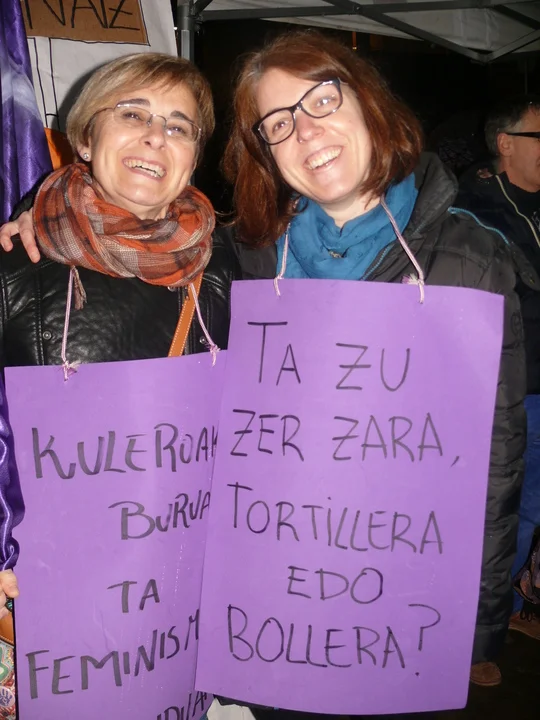 NAIZ
KULEROAK
BURUA
TA
FEMINISM
TA ZU
ZER ZARA,
TORTILLERA
EDO
BOLLERA?